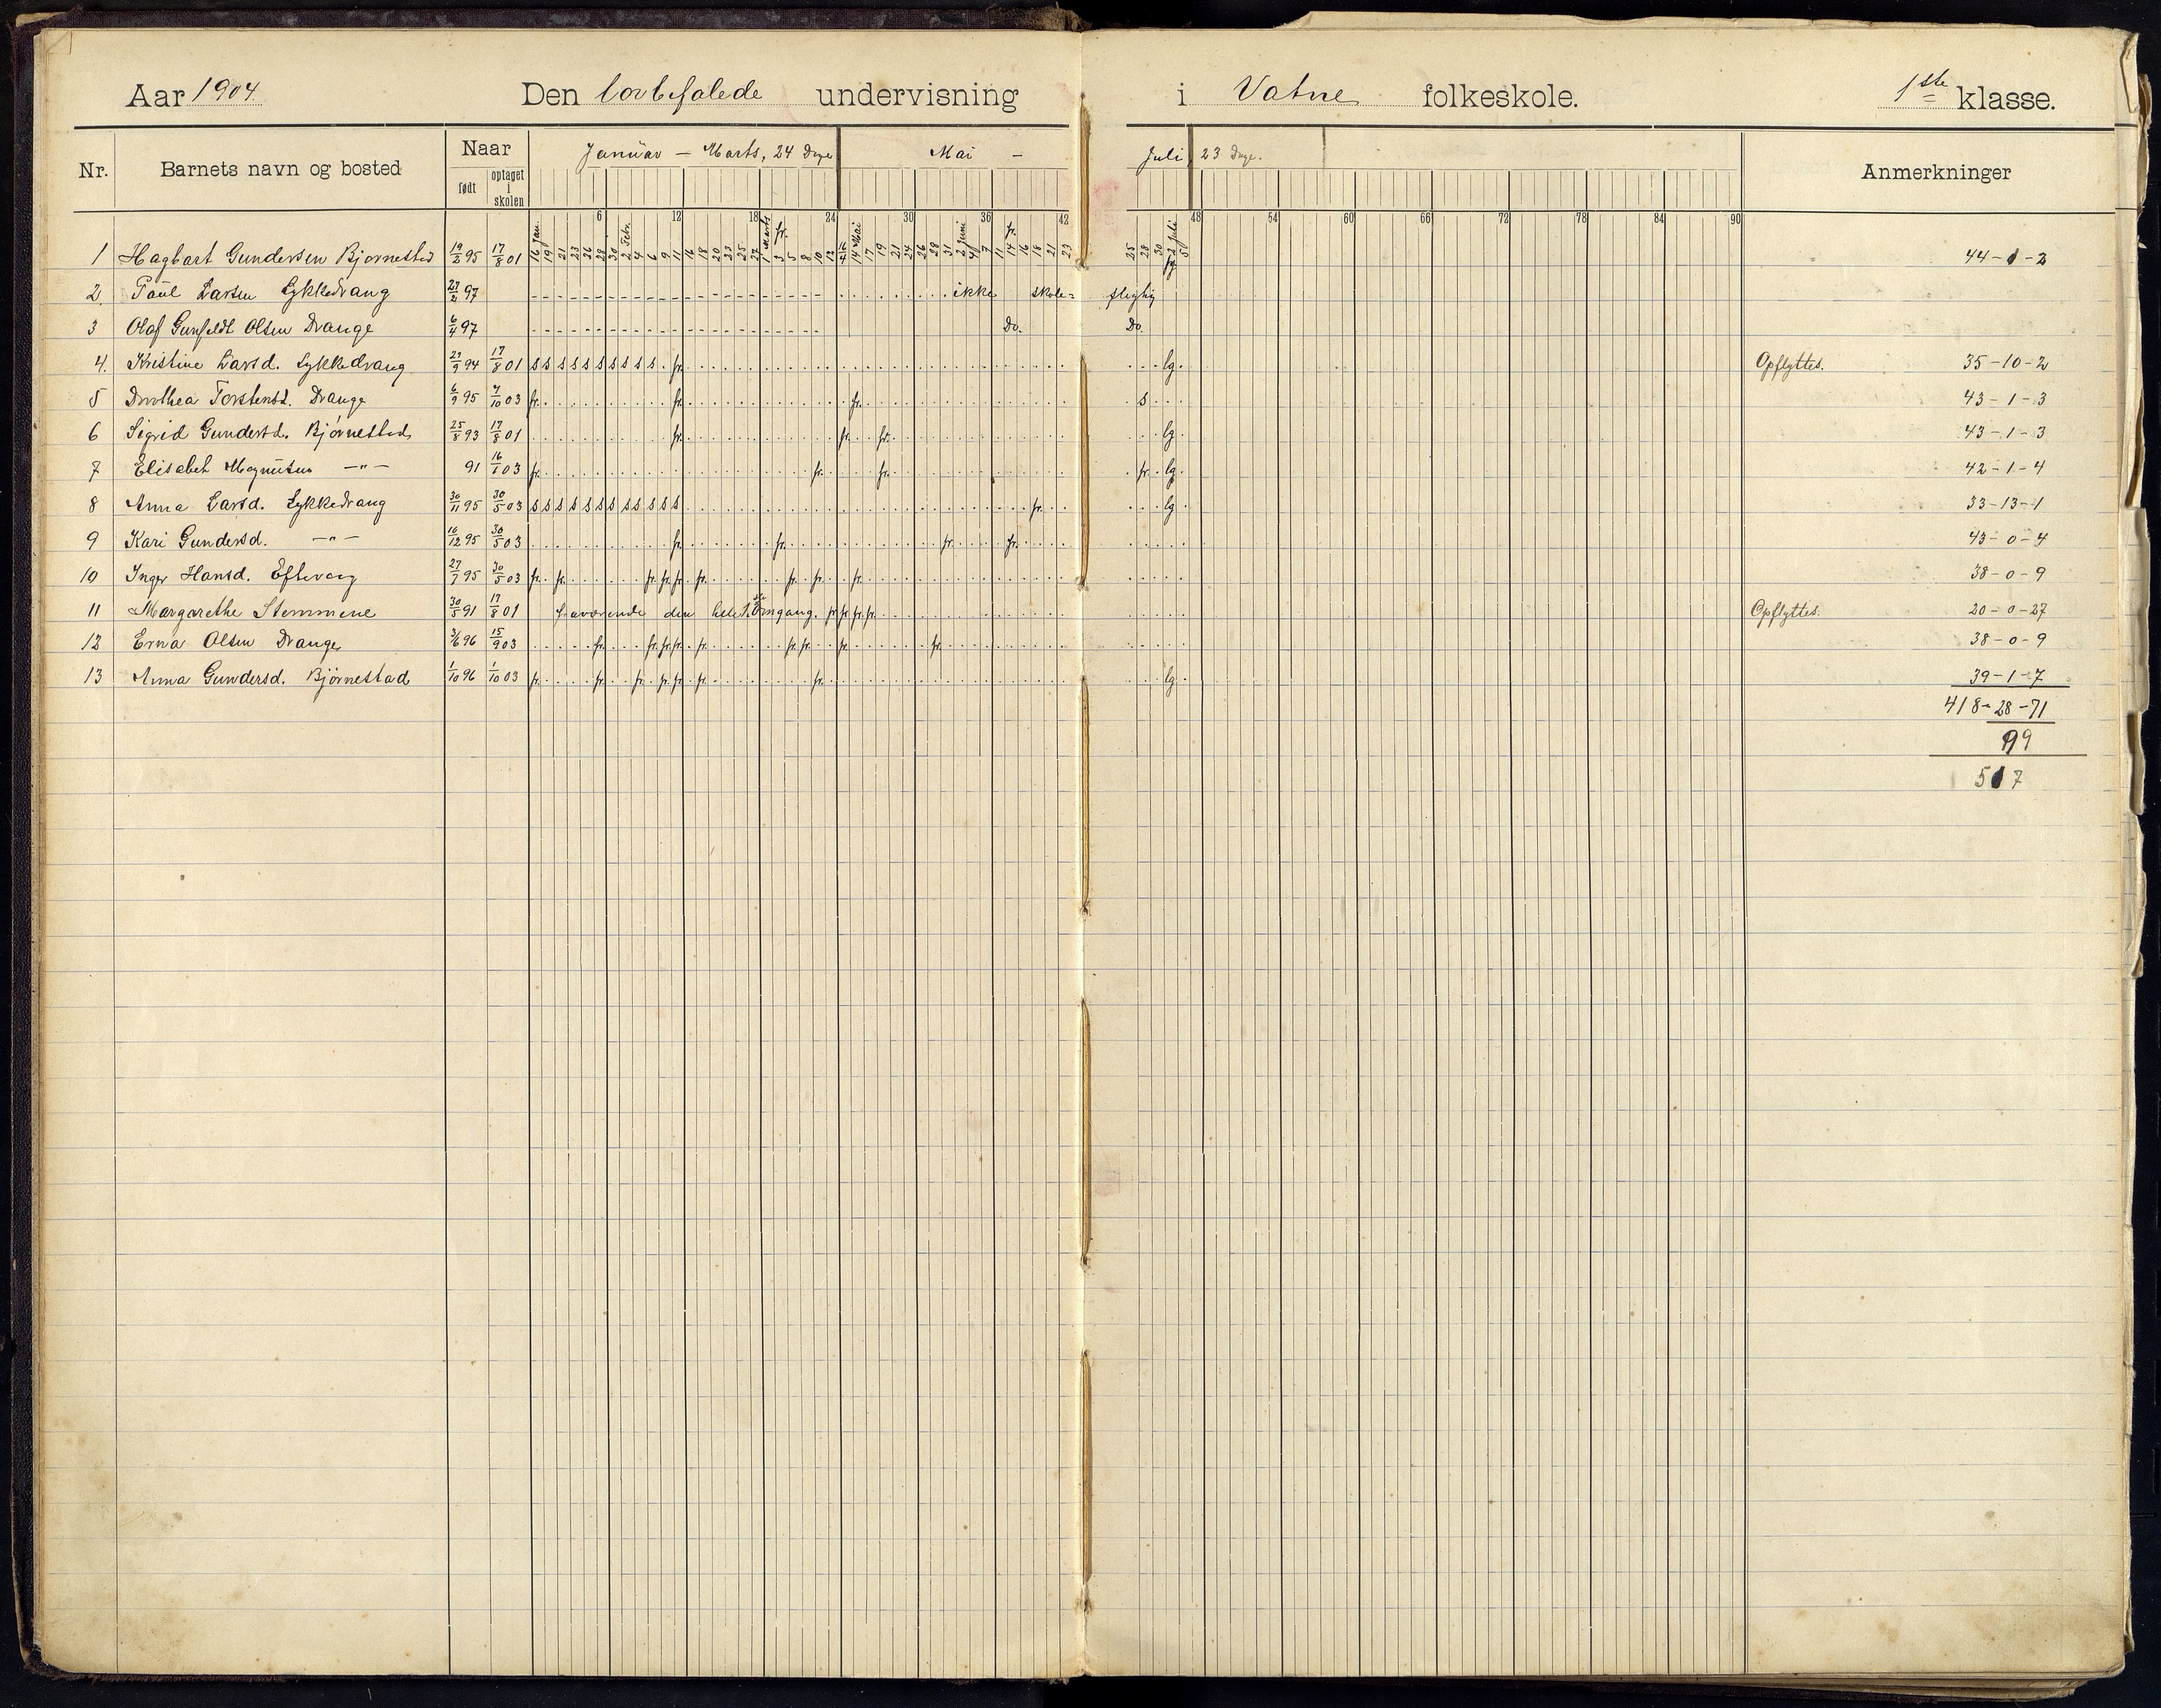 Aar 1904. Den lovbefalede undervisning i Vatne folkeskole. 1ste klasse.
Nr. Barnets navn og bosted Naar Januar — Marts, 24 Dage Mai — Juli, 23 Dage. Anmerkninger
født optaget i skolen
6 12 18 24 30 36 42 48 54 60 66 72 78 84 90
16 Jan. 19 21 23 26 28 30 2 Febr. 4 6 9 11 16 18 20 23 25 27 1 Marts 3 5 8 10 12 14 Mai 17 19 21 24 26 28 31 2 Juni 4 7 11 14 16 18 21 23 25 28 30 2 Juli 5
1 Hagbart Gundersen Bjørnestad 19/2 95 17/8 01 fr. fr. 44-1-2
2 Paul Larsen Lykkedrang 97 ikke skole= pligtig
3 Olaf Gunfeldt Olsen Drange 6/4 97 Do. Do.
4. Kristine Larsd. Lykkedrang 29/9 94 17/8 01 s s s s s s s s s s . fr. lg. Opflyttes. 35-10-2
5 Dorothea Torstensd. Drange 6/9 95 7/10 03 fr. fr. fr. s 43-1-3
6 Sigrid Gundersd. Bjørnestad 25/8 93 17/8 01 fr. fr. fr. lg. 43-1-3
7 Elisabet Magnusen —"— 91 16/1 03 fr. fr. fr. fr. lg. 42-1-4
8 Anna Larsd. Lykkedrang 30/11 95 30/5 03 s s s s s s s s s s s s fr. lg. 33-13-1
9 Kari Gundersd. —"— 16/12 95 30/5 03 fr. fr. fr. fr. 43-0-4
10 Inger Hansd. Eftevaag 27/7 95 30/5 03 fr. fr. fr. fr. fr. fr. fr. fr. fr. 38-0-9
11 Margarethe Stemmene 30/5 91 17/8 01 fraværende den hele 1ste Omgang. fr. fr. fr. fr. Opflyttes. 20-0-27
12 Erna Olsen Drange 3/6 96 15/9 03 fr. fr. fr. fr. fr. fr. fr. fr. fr. 38-0-9
13 Anna Gundersd. Bjørnestad 1/10 96 1/10 03 fr. fr. fr. fr. fr. fr. fr. lg. 39-1-7
418-28-71
99
517